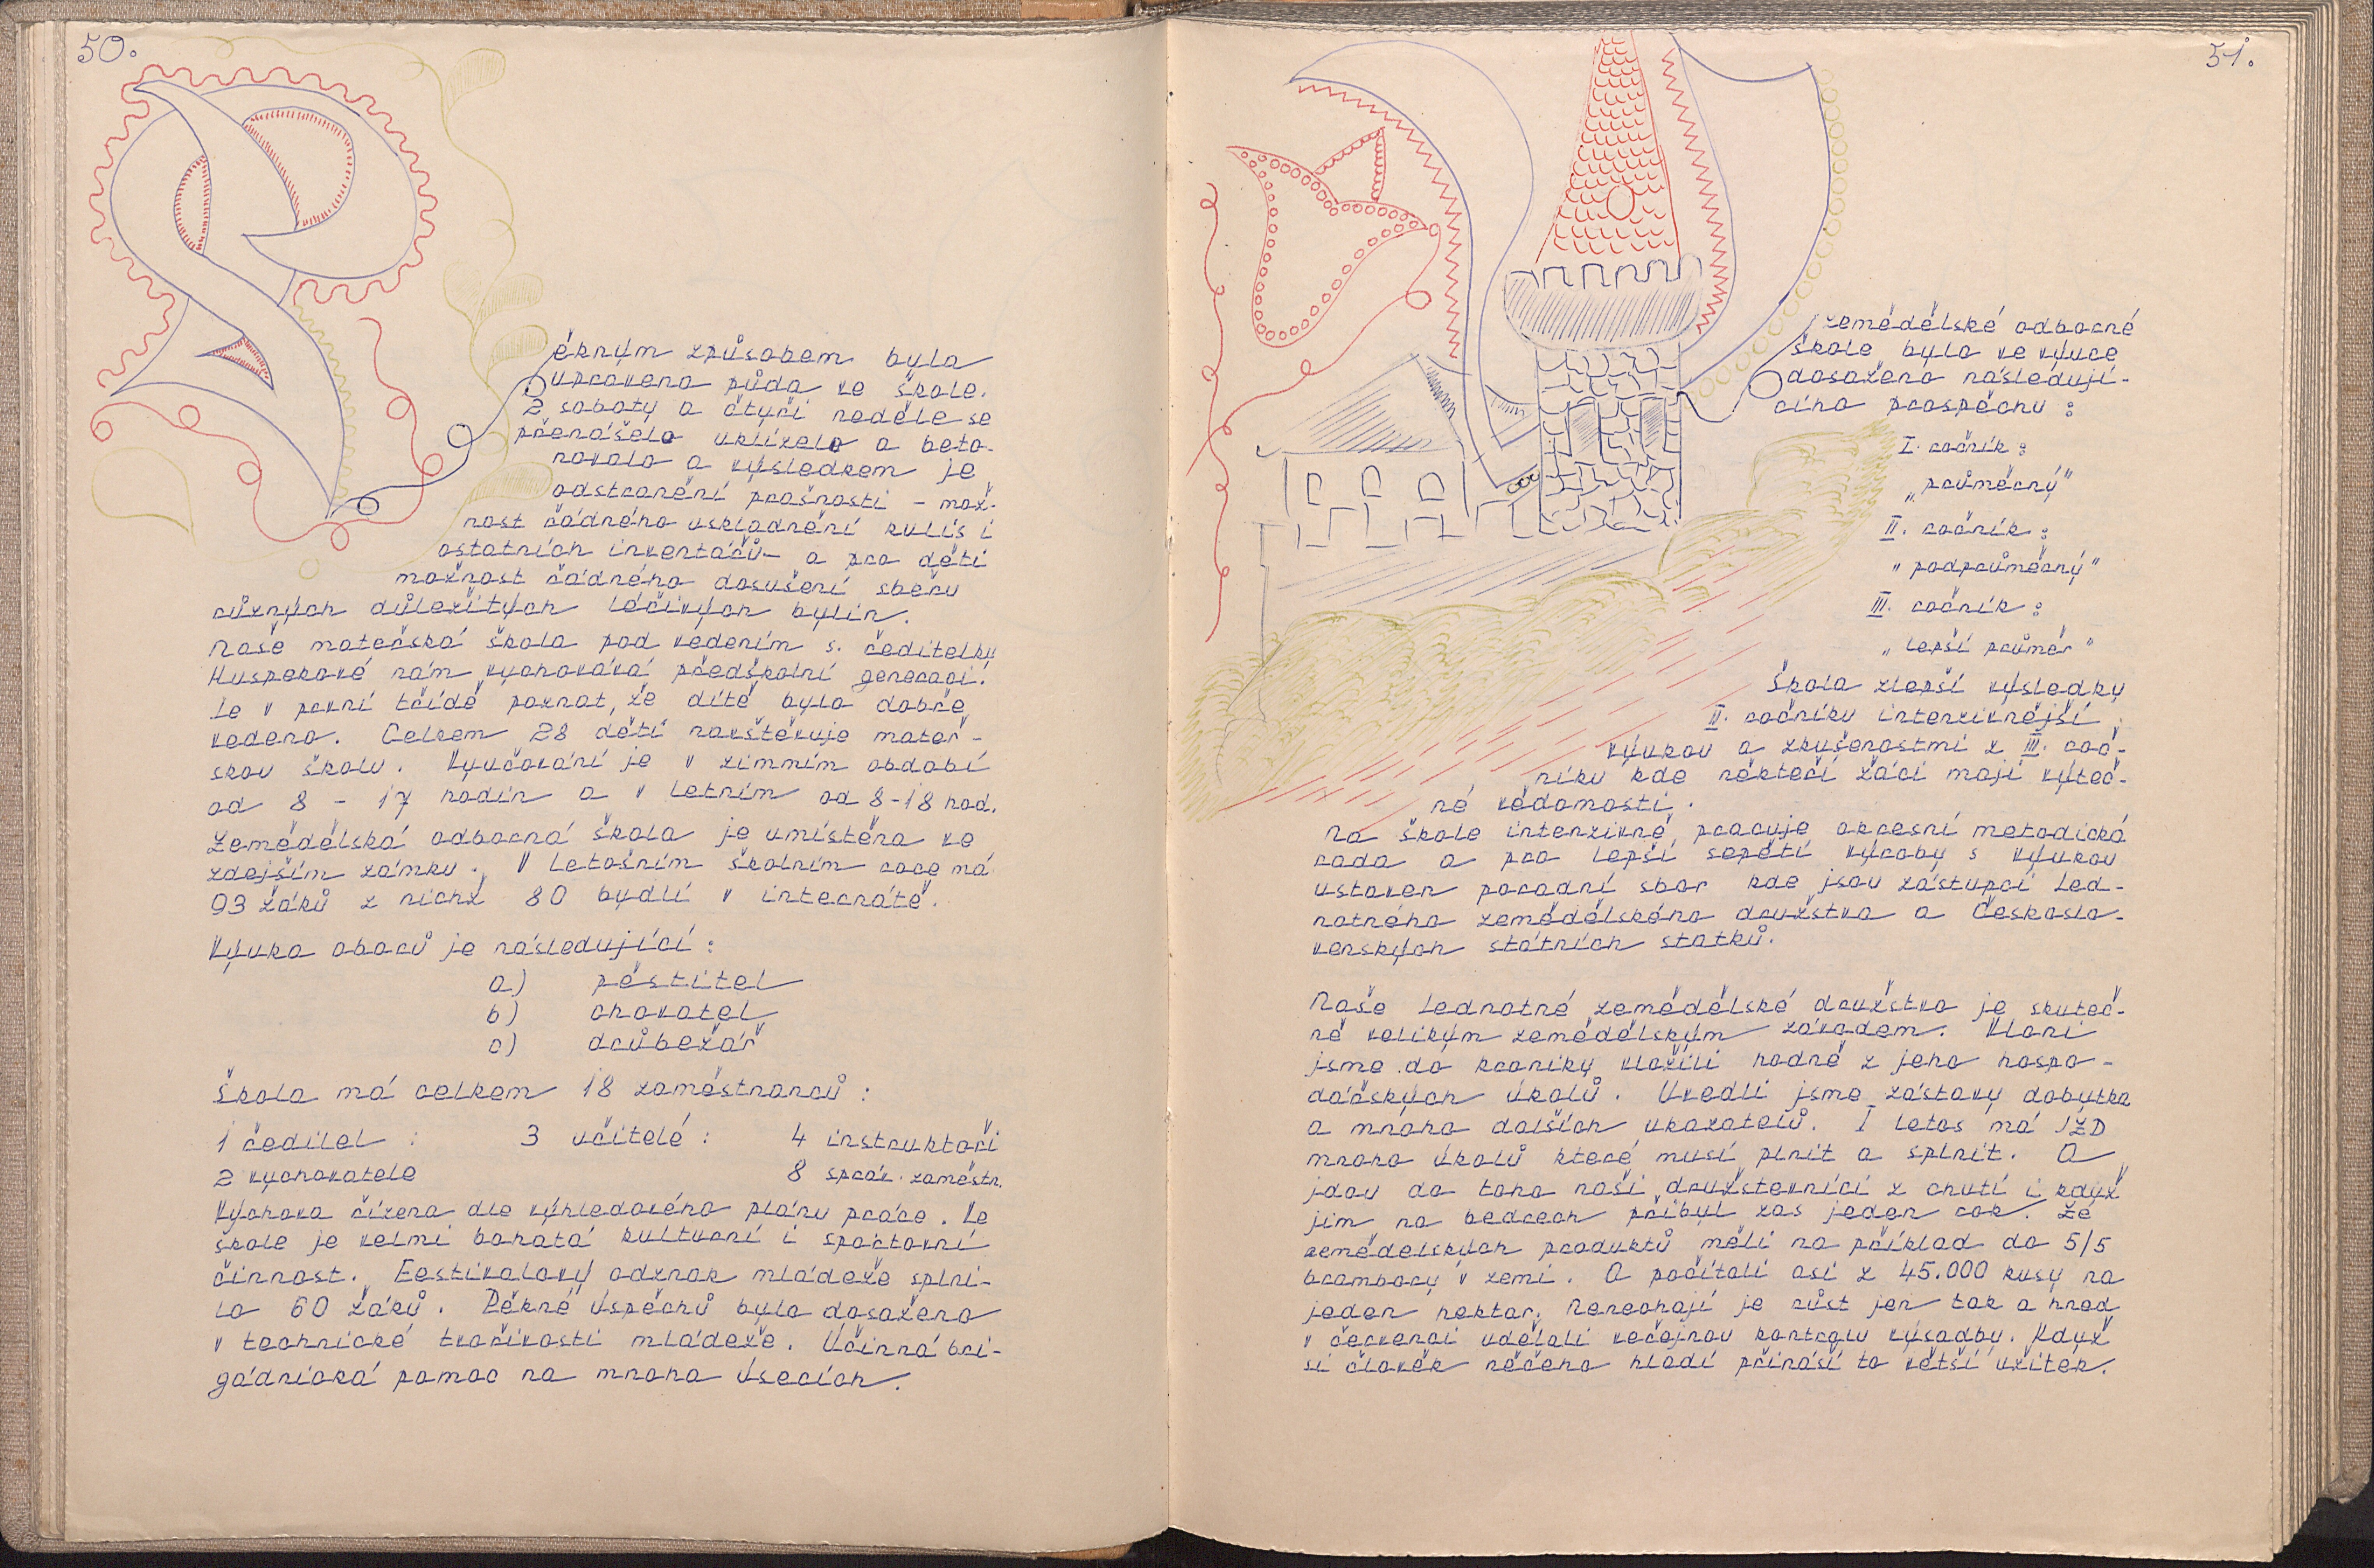 50.
Pěkným způsobem byla
upravena půda ve škole.
2 soboty a čtyři neděle se
přenášelo uklízelo a beto-
novalo a výsledkem je
odstranění prašnosti - mož-
nost řádného uskladnění kulis i
ostatních inventářů - a pro děti
možnost řádného dosušení sběru
různých důležitých léčivých bylin.
Naše mateřská škola pod vedením s. ředitelky
Huspekové nám vychovává předškolní generaci.
Je v první třídě poznat, že dítě bylo dobře
vedeno. Celkem 28 dětí navštěvuje mateř-
skou školu. Vyučování je v zimním období
od 8 - 17 hodin a v letním od 8-18 hod.
Zemědělská odborná škola je umístěna ve
zdejším zámku. V letošním školním roce má
93 žáků z nichž 80 bydlí v internátě.
Výuka oborů je následující:
a) pěstitel
b) chovatel
c) drůbežář
Škola má celkem 18 zaměstnanců:
1 ředitel : 3 učitelé : 4 instruktoři
2 vychovatele 8 správ. zaměstn.
Výchova řízena dle výhledového plánu práce. Ve
škole je velmi bohatá kulturní i sportovní
činnost. Festivalový odznak mládeže splni-
lo 60 žáků. Pěkné úspěchů bylo dosaženo
v technické tvořivosti mládeže. Účinná bri-
gádnická pomoc na mnoha úsecích.
51.
V zemědělské odborné
škole bylo ve výuce
dosaženo následují-
cího prospěchu :
I. ročník :
„průměrný"
II. ročník :
„podprůměrný"
III. ročník :
„lepší průměr"
Škola zlepší výsledky
II. ročníku intenzivnější
výukou a zkušenostmi z III. roč-
níku kde někteří žáci mají výteč-
né vědomosti.
Na škole intenzivně pracuje okresní metodická
rada a pro lepší sepětí výroby s výukou
ustaven poradní sbor kde jsou zástupci Jed-
notného zemědělského družstva a Českoslo-
venských státních statků.
Naše Jednotné zemědělské družstvo je skuteč-
ně velikým zemědělským závodem. Vloni
jsme do kroniky vložili hodně z jeho hospo-
dářských úkolů. Uvedli jsme zástavy dobytka
a mnoho dalších ukazatelů. I letos má JZD
mnoho úkolů které musí plnit a splnit. A
jdou do toho naši družstevníci z chutí i když
jim na bedrech přibyl zas jeden rok. Ze
zemědělských produktů měli na příklad do 5/5
brambory v zemi. A počítali asi z 45.000 kusy na
jeden hektar. Nenechají je růst jen tak a hned
v červenci udělali veřejnou kontrolu výsadby. Když
si člověk něčeho hledí přináší to větší užitek.